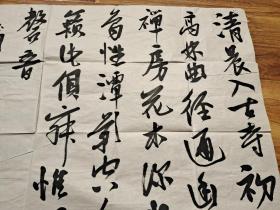 清晨入古寺初
高林曲徑通幽
禪房花木深
鳥性潭影空人
籟此俱寂惟
磬音